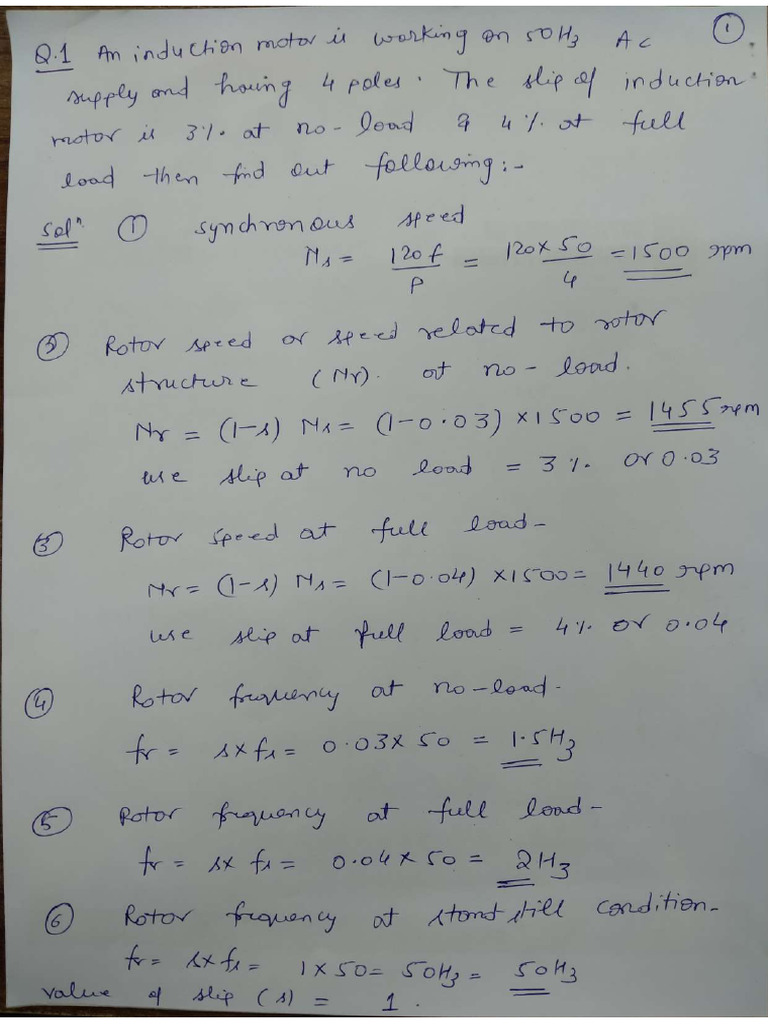 ①
Q.1 An induction motor is working on 50Hz Ac
supply and having 4 poles. The slip of induction
motor is 3% at no-load & 4% at full
load then find out following:-
Solⁿ ① synchronous speed
Ns = 120f / P = 120×50 / 4 = 1500 rpm
② Rotor speed or speed related to rotor
structure (Nr). at no-load.
Nr = (1-s) Ns = (1-0.03) ×1500 = 1455 rpm
use slip at no load = 3% or 0.03
③ Rotor speed at full load-
Nr = (1-s) Ns = (1-0.04) ×1500 = 1440 rpm
use slip at full load = 4% or 0.04
④ Rotor frequency at no-load-
fr = s×fs = 0.03×50 = 1.5Hz
⑤ Rotor frequency at full load-
fr = s×fs = 0.04×50 = 2Hz
⑥ Rotor frequency at stand still condition-
fr = s×fs = 1×50 = 50Hz = 50Hz
value of slip (s) = 1.